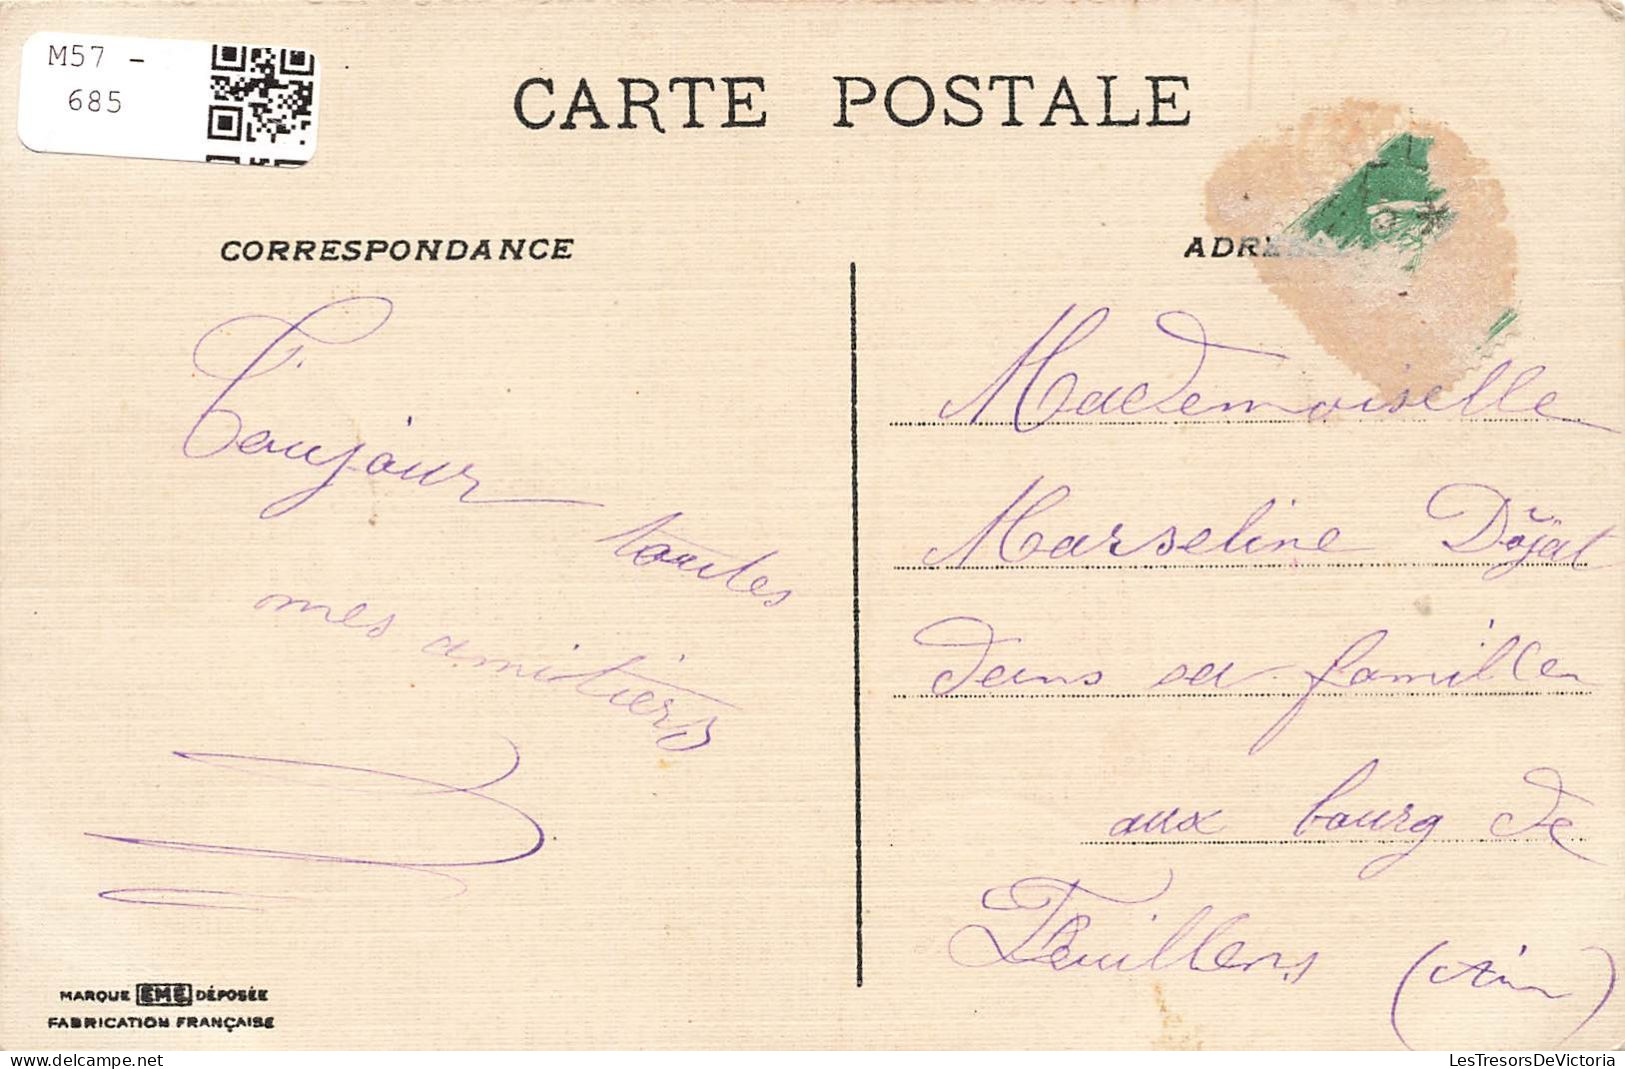 M57 -
685
CARTE POSTALE
CORRESPONDANCE
ADRE
Toujour
toutes
mes amitiers
Mademoiselle
Marseline Dojat
dans sa famille
aux bourg de
Feuillens (Ain)
MARQUE EME DÉPOSÉE
FABRICATION FRANÇAISE
LesTresorsDeVictoria